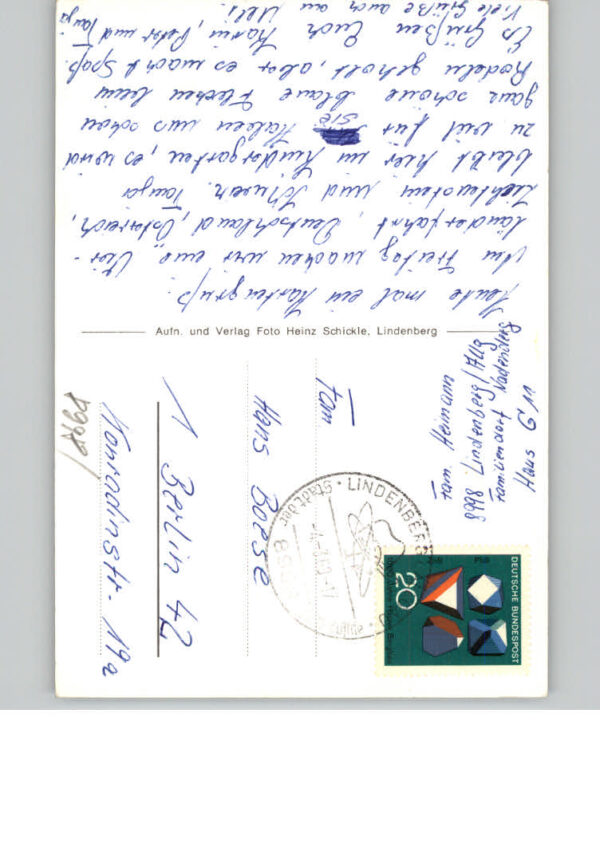 Heute mal ein Kartengruß.
Am Freitag machen wir eine Vier-
länderfahrt, Deutschland, Österreich,
Lichtenstein und Schweiz. Tanja
bleibt hier im Kindergarten, es wird
zu viel für sie. Haben uns schon
ganz schöne blaue Flecken beim
Rodeln geholt, aber es macht Spaß.
Es Grüßen Euch Karin, Peter und Tanja
Viele Grüße auch an Uli.
Aufn. und Verlag Foto Heinz Schickle, Lindenberg
Fam. Heimann
8998 Lindenberg/Allg
Familiendorf Nadenberg
Haus G 11
Fam
Hans Boese
1 Berlin 42
Konradinstr. 19a
LINDENBERG
Stadt der
DEUTSCHE BUNDESPOST
20